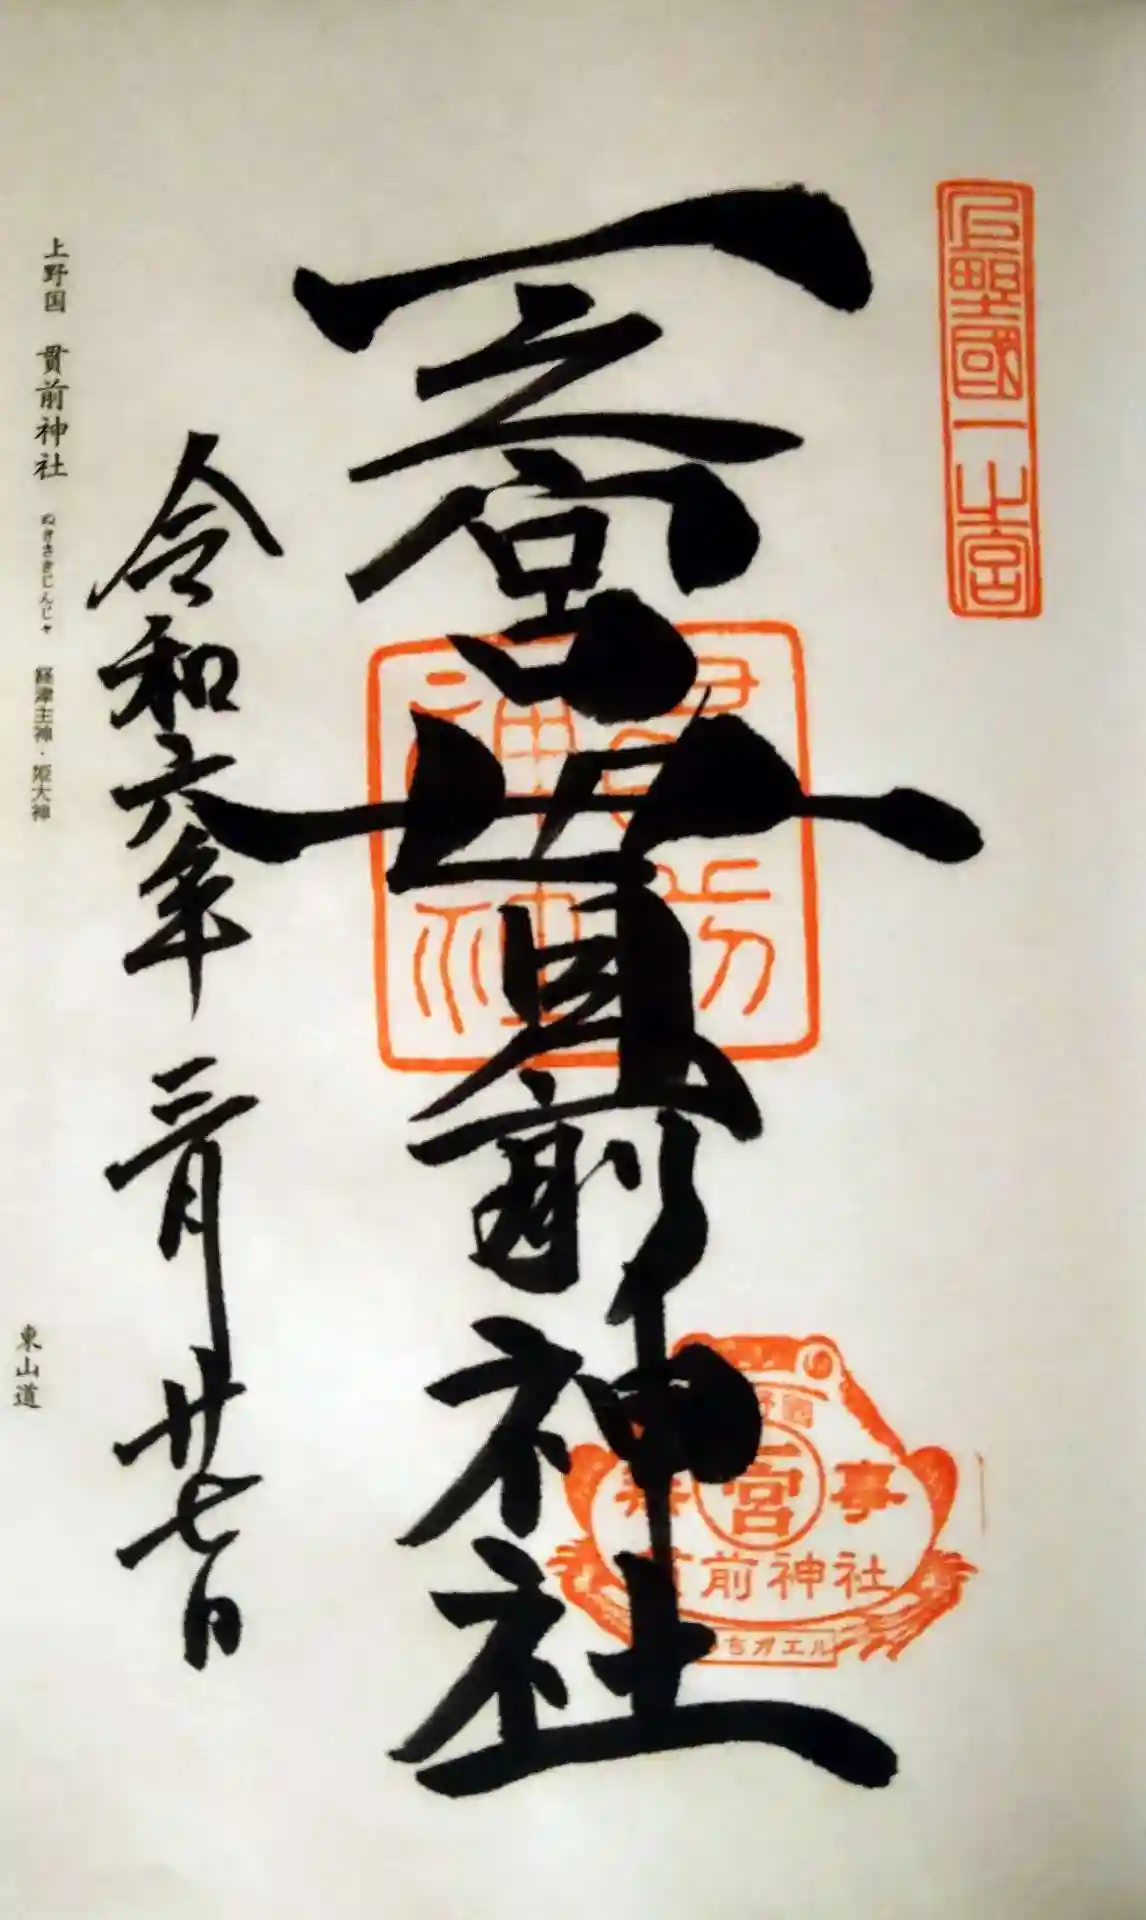 上野國一之宮
一之宮貫前神社
貫前神社
無事
一宮
貫前神社
カエル
令和六年三月廿七日
上野国 貫前神社 ぬきさきじんじゃ 経津主神・姫大神
東山道